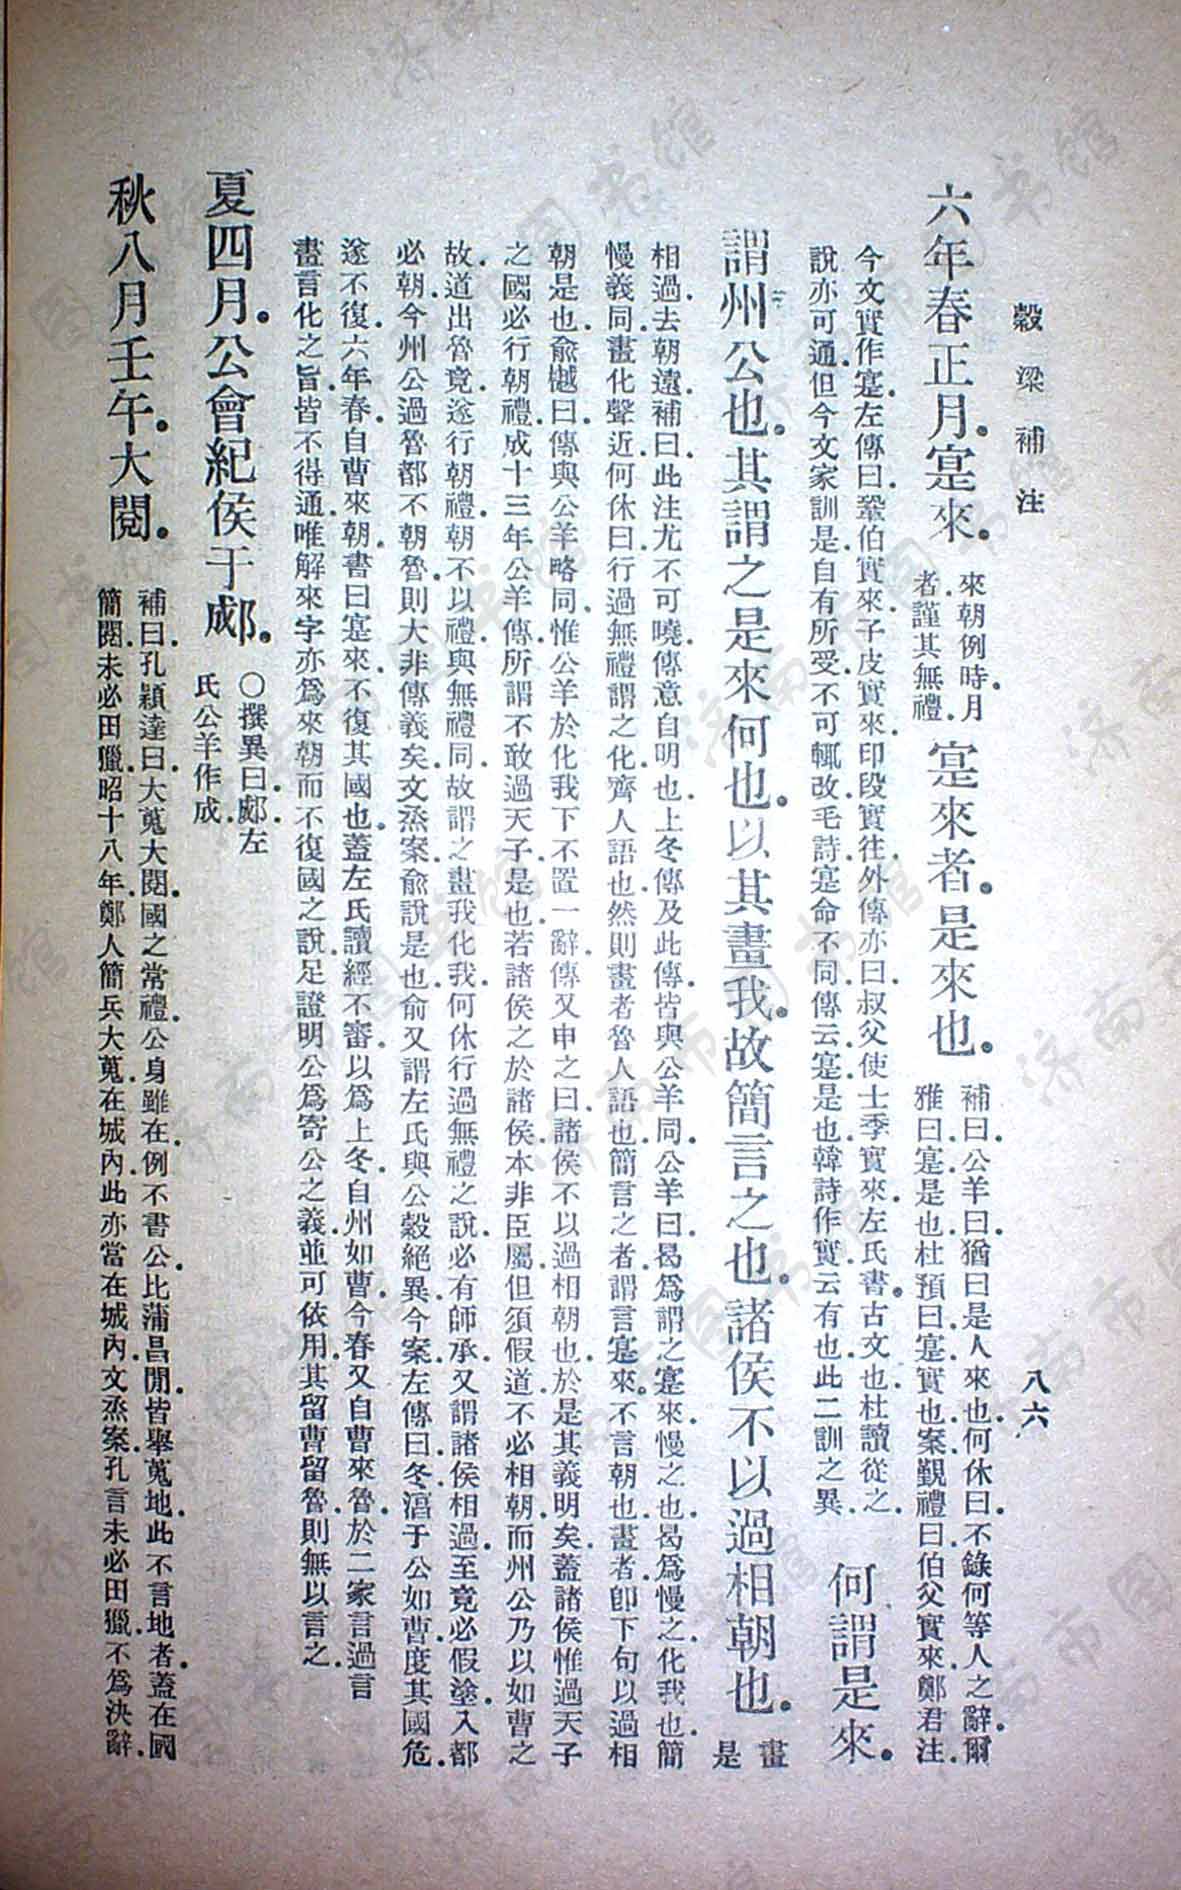 穀梁補注
八六
六年春正月。寔來。
來朝例時。月
者。謹其無禮。
寔來者。是來也。
補曰。公羊曰。猶曰是人來也。何休曰。不錄何等人之辭。爾
雅曰。寔。是也。杜預曰。寔。實也。案。覲禮曰。伯父實來。鄭君注。
今文實作寔。左傳曰。鞏伯實來。子皮實來。印段實往。外傳亦曰。叔父使士季實來。左氏書。古文也。杜讀從之。
說亦可通。但今文家訓是。自有所受。不可輒改。毛詩。寔命不同。傳云。寔。是也。韓詩作實。云。有也。此二訓之異。
何謂是來。
謂州公也。其謂之是來何也。以其畫我。故簡言之也。諸侯不以過相朝也。
畫
是
相過。去朝遠。補曰。此注尤不可曉。傳意自明也。上冬傳及此傳。皆與公羊同。公羊曰。曷爲謂之寔來。慢之也。曷爲慢之。化我也。簡
慢義同。畫化聲近。何休曰。行過無禮謂之化。齊人語也。然則畫者。魯人語也。簡言之者。謂言寔來。不言朝也。畫者。卽下句以過相
朝是也。俞樾曰。傳與公羊略同。惟公羊於化我下不置一辭。傳又申之曰。諸侯不以過相朝也。於是其義明矣。蓋諸侯惟過天子
之國。必行朝禮。成十三年公羊傳。所謂不敢過天子是也。若諸侯之於諸侯。本非臣屬。但須假道。不必相朝。而州公乃以如曹之
故。道出魯竟。遂行朝禮。朝不以禮。與無禮同。故謂之畫我化我。何休行過無禮之說。必有師承。又謂諸侯相過。至竟必假塗。入都
必朝。今州公過魯都不朝魯。則大非傳義矣。文烝案。俞說是也。俞又謂左氏與公穀絕異。今案。左傳曰。冬。淳于公如曹。度其國危。
遂不復。六年春。自曹來朝。書曰寔來。不復其國也。蓋左氏讀經不審。以爲上冬。自州如曹。今春。又自曹來魯。於二家言過言
畫言化之旨。皆不得通。唯解來字亦爲來朝。而不復國之說。足證明公爲寄公之義。並可依用。其留曹留魯。則無以言之。
夏四月。公會紀侯于郕。
○撰異曰。郕。左
氏公羊作成。
秋八月壬午。大閱。
補曰。孔穎達曰。大蒐大閱。國之常禮。公身雖在。例不書公。比蒲昌閒。皆舉蒐地。此不言地者。蓋在國
簡閱。未必田獵。昭十八年。鄭人簡兵大蒐。在城內。此亦當在城內。文烝案。孔言未必田獵。不爲決辭。